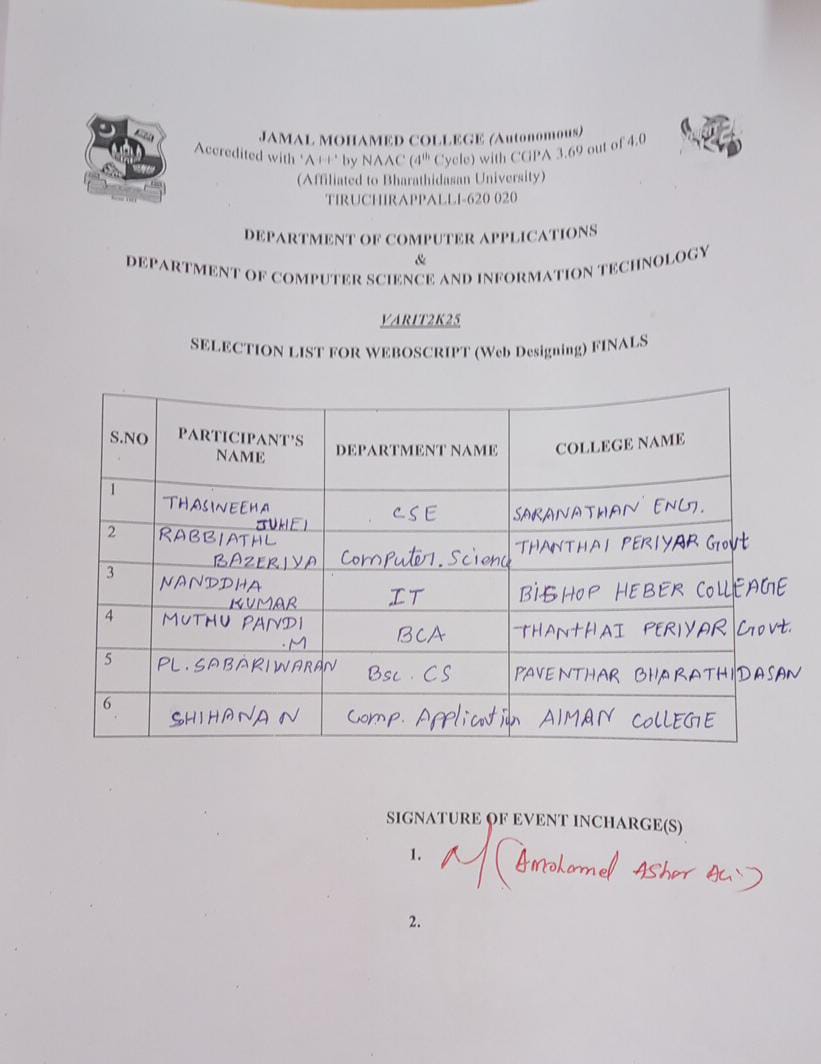 JAMAL MOHAMED COLLEGE (Autonomous)
Accredited with 'A++' by NAAC (4th Cycle) with CGPA 3.69 out of 4.0
(Affiliated to Bharathidasan University)
TIRUCHIRAPPALLI-620 020
DEPARTMENT OF COMPUTER APPLICATIONS
&
DEPARTMENT OF COMPUTER SCIENCE AND INFORMATION TECHNOLOGY
VARIT2K25
SELECTION LIST FOR WEBOSCRIPT (Web Designing) FINALS
S.NO PARTICIPANT'S NAME DEPARTMENT NAME COLLEGE NAME
1 THASINEEHA JUHEI CSE SARANATHAN ENG.
2 RABBIATHL BAZERIYA Computer. Science THANTHAI PERIYAR Govt
3 NANDDHA KUMAR IT BISHOP HEBER COLLEAGE
4 MUTHU PANDI .M BCA THANTHAI PERIYAR Govt.
5 PL.SABARIWARAN Bsc. CS PAVENTHAR BHARATHIDASAN
6 SHIHANA N Comp. Application AIMAN COLLEGE
SIGNATURE OF EVENT INCHARGE(S)
1. (Amohamel Asher
2.